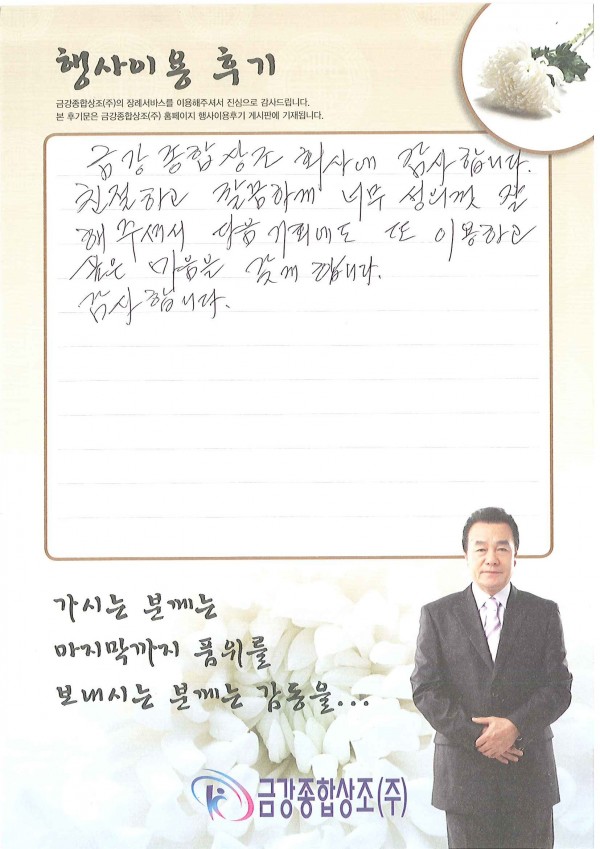 행사이용 후기
금강종합상조(주)의 장례서비스를 이용해주셔서 진심으로 감사드립니다.
본 후기문은 금강종합상조(주) 홈페이지 행사이용후기 게시판에 기재됩니다.
금강종합상조 회사에 감사합니다.
친절하고 깔끔하게 너무 성의껏 잘
해주셔서 다음기회에도 또 이용하고
싶은 마음을 갖게 됩니다.
감사합니다.
가시는 분께는
마지막까지 품위를
보내시는 분께는 감동을...
금강종합상조(주)